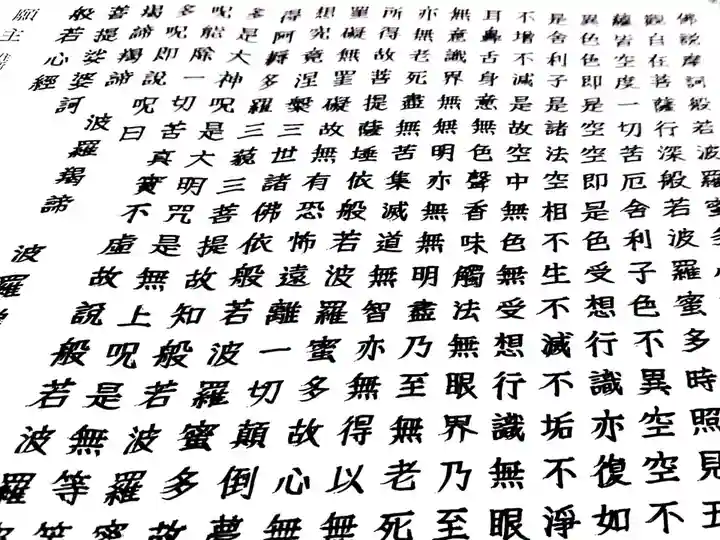 佛說摩訶般若波羅蜜多心
觀自在菩薩行深般若波羅蜜多時照見五
薩皆空度一切苦厄舍利子色不異空空不
異色色即是空空即是色受想行識亦復如
是舍利子是諸法空相不生不滅不垢不淨
不增不減是故空中無色無受想行識無眼
耳鼻舌身意無色聲香味觸法無眼界乃至
無意識界無無明亦無無明盡乃至無老死
亦無老死盡無苦集滅道無智亦無得以無
所得故菩提薩埵依般若波羅蜜多故心無
罣礙無罣礙故無有恐怖遠離一切顛倒夢
想究竟涅槃三世諸佛依般若波羅蜜多故
得阿耨多羅三藐三菩提故知般若波羅蜜
多是大神呪是大明咒是無上呪是無等等
呪能除一切苦真實不虛故說般若波羅
多呪即說呪曰
揭諦揭諦波羅揭諦波羅
菩提娑婆訶
般若心經
願主